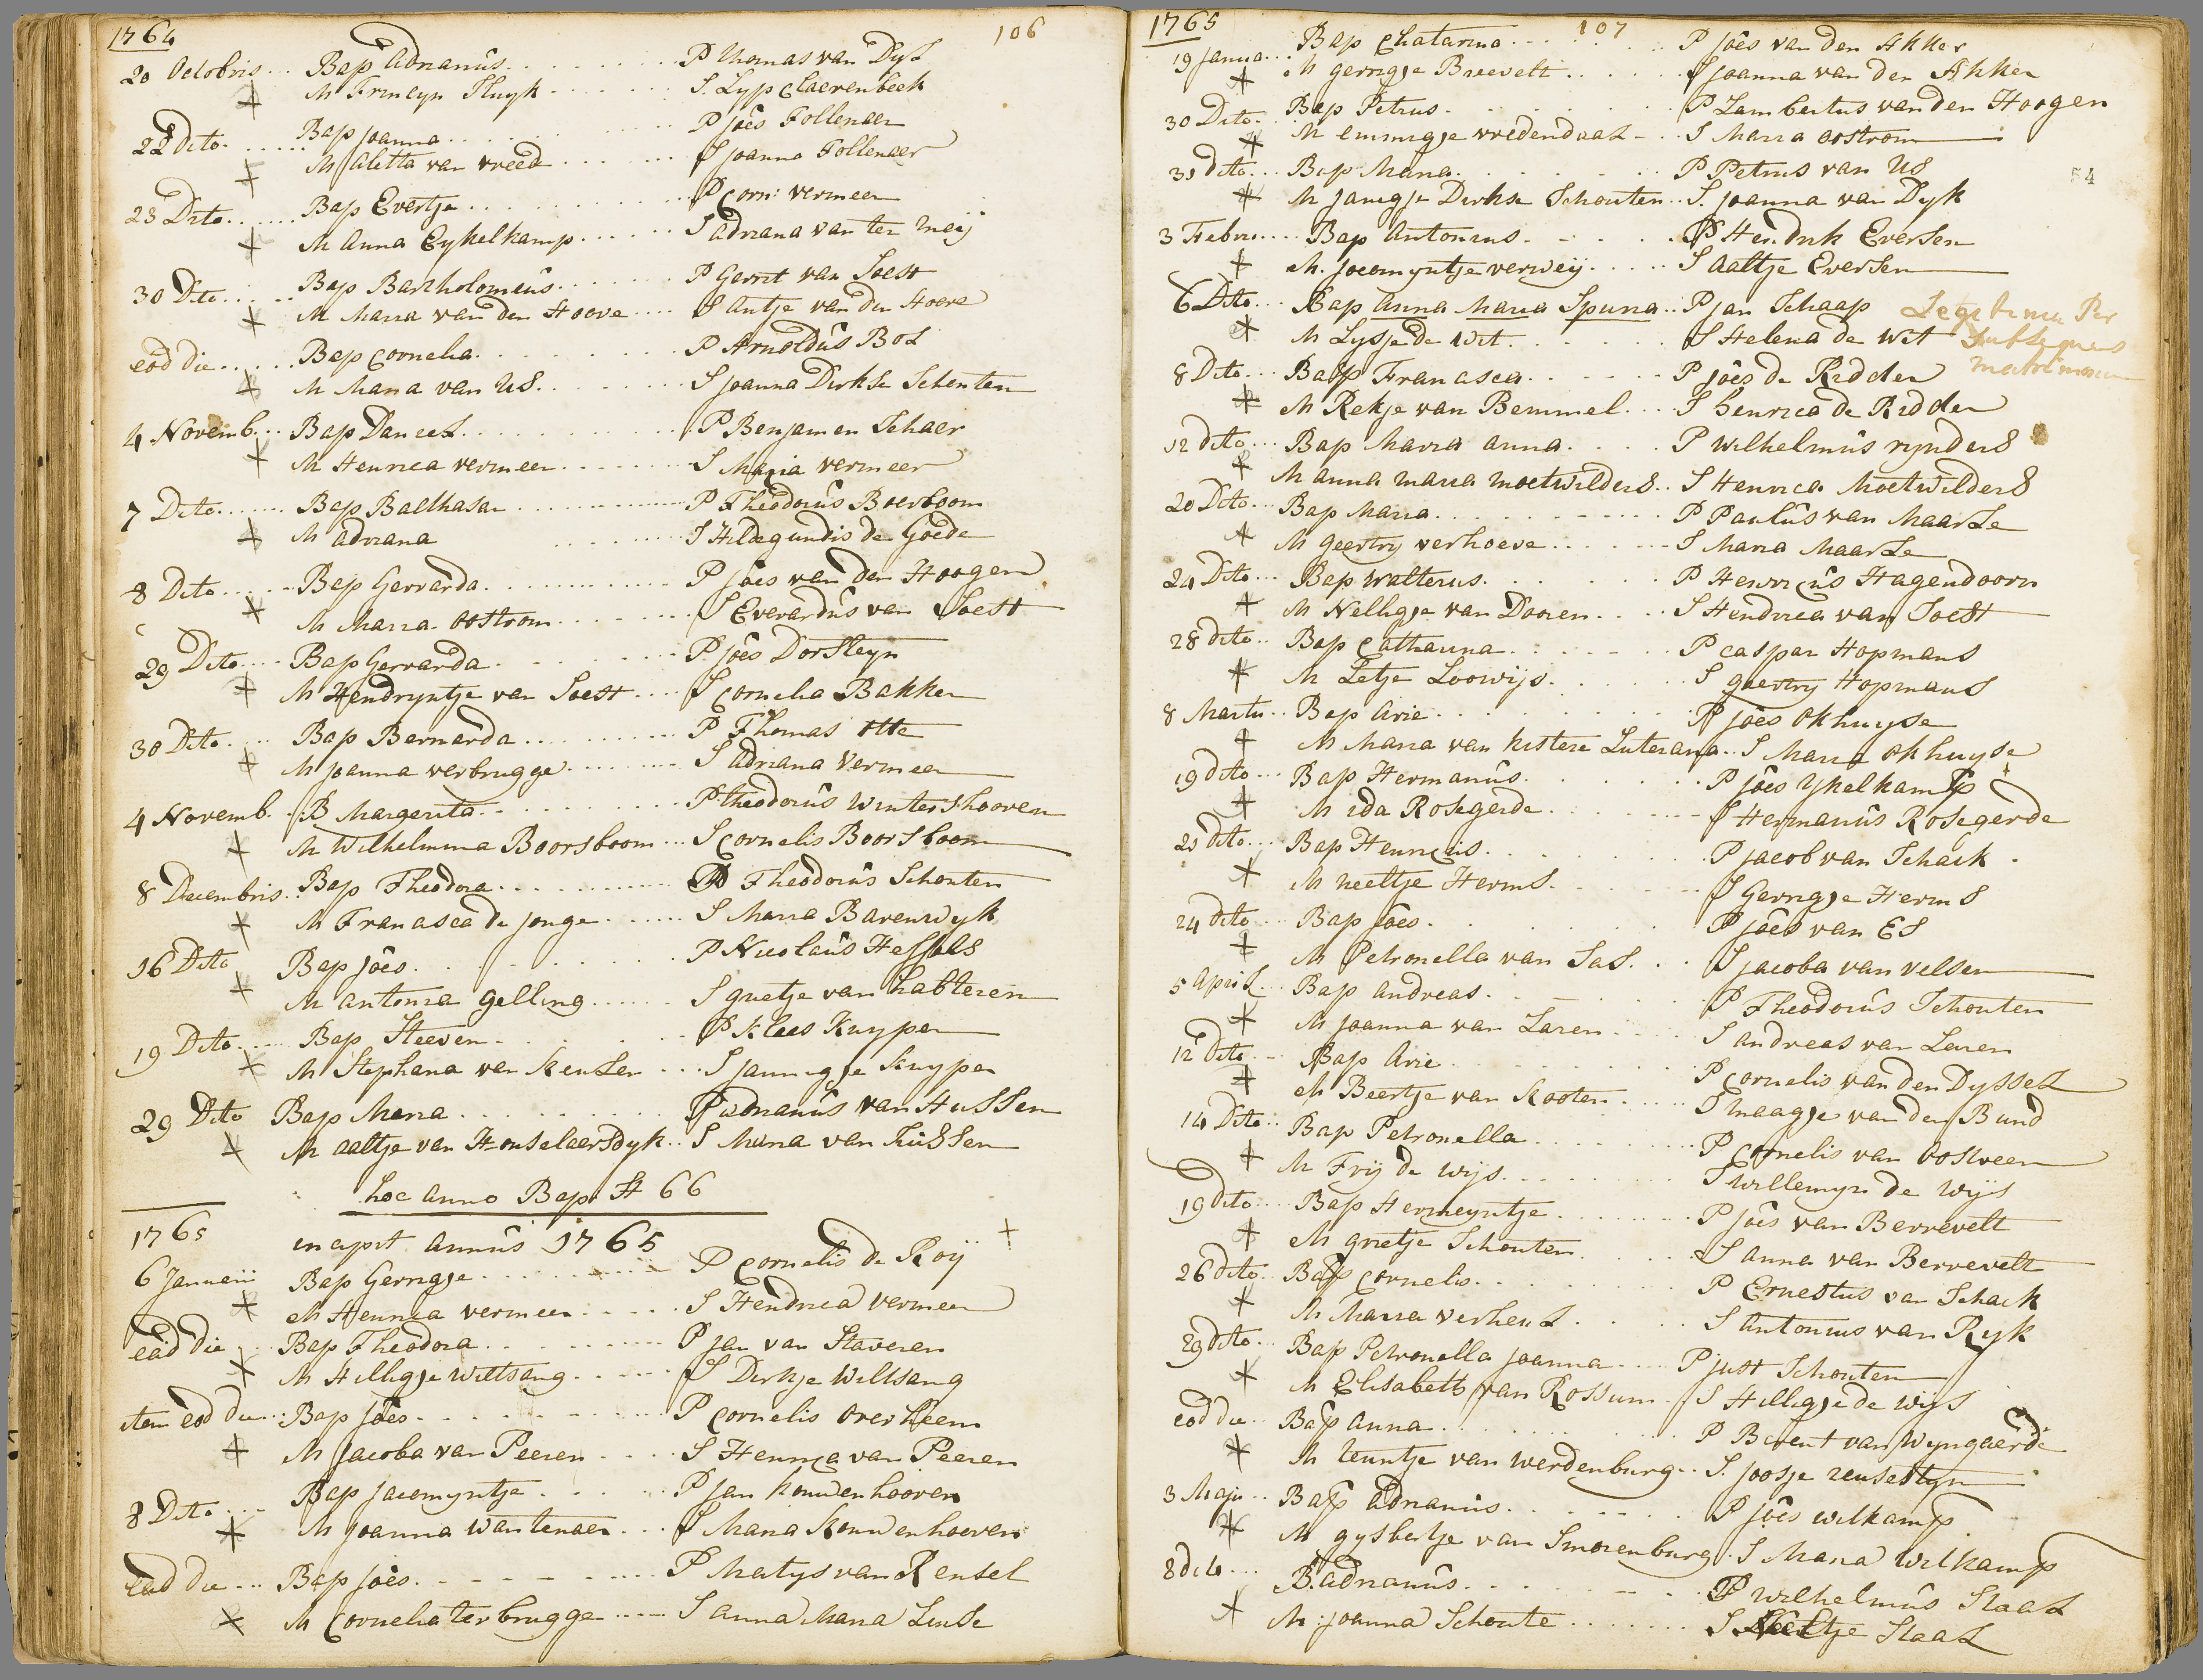 1764
106
20 Octobris... Bap Adrianus......... P Thomas van Dyl
M Fremeyn Sluyk....... S. Lyp Claerenbeek
22 dito....... Bap joanna......... P joês Follenaer
M Aletta van vreed....... S joanna Follenaer
23 Dito....... Bap Evertje......... P Corn: vermeer
M Anna Eykelkamp...... S adriana van ter meij
30 Dito..... Bap Bartholomeus....... P Gerrit van Soest
M Maria van den Hoove.... S Antje van den Hoeve
eod die...... Bap Cornelia......... P Arnoldus Bol
M Maria van Us......... S joanna Dirkse Schouten
4 Novemb... Bap Daneel......... P Benjamen Schaer
M Henrica vermeer........ S Maria vermeer
7 Dito...... Bap Balthasar......... P Theodorus Boersboom
M adriana ........ S Hildegundis de Goede
8 Dito..... Bap Gerrarda......... P joês van den Hoogen
M Maria oostrom........ S Everardus van Soest
29 Dito.... Bap Gerrarda......... P. joês Dorsleyn
M Hendryntje van Soest.... S Cornelia Bakker
30 Dito..... Bap Bernarda......... P Thomas Otte
M joanna verbrugge........ S adriana Vermeer
4 Novemb.. B Margerita......... P theodorus Wintershooven
M Wilhelmina Boorsboom... S Cornelis Boorsboom
8 Decembris.. Bap Theodora......... P Theodorus Schouten
M Francisca de jonge...... S Maria Barenwyk
16 Dito Bap joês......... P Nicolaus Hessels
M antonia Gelling...... S grietje van halteren
19 Dito.... Bap Steeven......... P Klaes Kuyper
M Stephana van Keulen.... S jannigje Kuyper
29 Dito Bap Maria......... P adrianus van Hussen
M Aaltje van Honselaersdyk.. S Maria van huissen
hoc anno Bap: st 66
1765
incipit annus 1765
6 Januarii Bap Gerrigje......... P Cornelis de Roij
M Henrica vermeer..... S Hendrica vermeer
eâd die... Bap Theodora......... P jan van Staveren
M Hilligje Wiltsang...... S Dirkje Wiltsang
item eod die.. Bap joês......... P Cornelis overheem
M Jacoba van Peeren.... S Henrica van Peeren
8 Dito.... Bap jacomyntje...... P jan Kouwenhooven
M joanna Wantenaer.... S Maria Kouwenhoeven
ead die... Bap joês......... P Matys van Rensel
M Cornelia ter brugge..... S anna Maria Leuse
1765
107
19 janua... Bap Chatarina......... P joês van den Akker
M gerrigje Breevelt...... S joanna van den Akker
30 Dito.. Bap Petrus......... P Lambertus van den Hoogen
M emmigje vredendaal... S Maria oostrom
54
31 dito... Bap Maria......... P Petrus van Us
M jannigje Dirkse Schouten.. S. joanna van Dyk
3 Febru.... Bap Antonius...... P Hendrik Eversen
M. jacomyntje verweij..... S Aaltje Eversen
6 Dito... Bap anna Maria Spuria.. P jan Schaap Legitima Per
M Lysje de Wit...... S Helena de Wit Subsequens
matrimonium
8 Dito... Bap Francisca...... P joês de Ridder
M Rekje van Bemmel.... S henrica de Ridder
12 dito... Bap Maria anna.... P Wilhelmus rynders
M anna maria moetwilders.. S Henrica Moetwilders
20 Dito.. Bap Maria......... P Paulus van Maarle
M geertry verhoeve...... S Maria Maarle
24 Dito... Bap Walterus...... P Henricus Hagendoorn
M Nelligje van Dooren.... S Hendrica van Soest
28 dito.. Bap Catharina...... P Caspar Hopmans
M Letje Loowijs...... S geertry Hopmans
8 Martii.. Bap Arie......... P joês Okhuyse
M Maria van kistere Luterana.. S Maria Okhuyse
19 dito... Bap Hermanus...... P joês ykelkamp
M ida Rosegerde...... S Hermanus Rosegerde
21 dito... Bap Henricus...... P jacob van Schaik.
M neeltje Herms...... S Gerrigje Herms
24 dito.. Bap joês......... P joês van Es
M Petronella van Sas... S jacoba van velsen
5 April.. Bap Andreas......... P Theodorus Schouten
M joanna van Laren.... S andreas van Laren
12 dito.. Bap Arie......... P Cornelis van den Dyssel
M Beertje van Kooten..... S Maagje van den Bund
14 Dito.. Bap Petronella......... P Cornelis van Oostveen
M Frij de wijs......... S Willemyn de Wijs
19 dito.... Bap Hermeyntje......... P joês van Berrevelt
M grietje Schouten....... S anna van Berrevelt
26 dito.. Bap Cornelis......... P Ernestus van Schaik
M Maria verheul..... S Antonius van Ryk
29 dito... Bap Petronella joanna..... P just Schouten
M Elisabeth van Rossum.. S Hilligje de wijs
eod die.. Bap Anna......... P Berent van Wyngaerde
M teuntje van werdenburg.. S. joosje reusestyn
3 Maji.. Bap Adrianus......... P joês wilkamp
M gysbertje van Smorenburg. S Maria Wilkamp
8 dito... B. adrianus......... P Wilhelmus Staal
M: joanna Schoute....... S Neeltje Staal